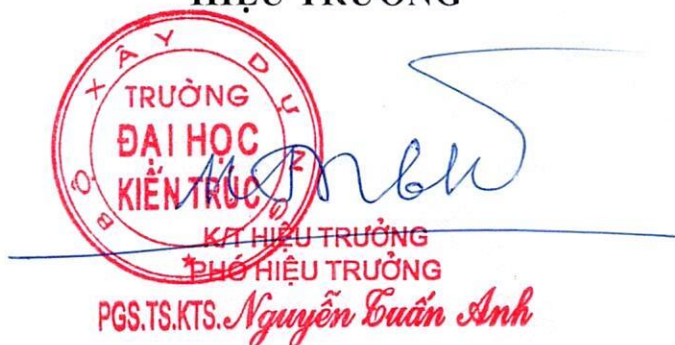 HIỆU TRƯỞNG
BỘ XÂY DỰNG
TRƯỜNG
ĐẠI HỌC
KIẾN TRÚC
K/T HIỆU TRƯỞNG
PHÓ HIỆU TRƯỞNG
PGS.TS.KTS. Nguyễn Tuấn Anh